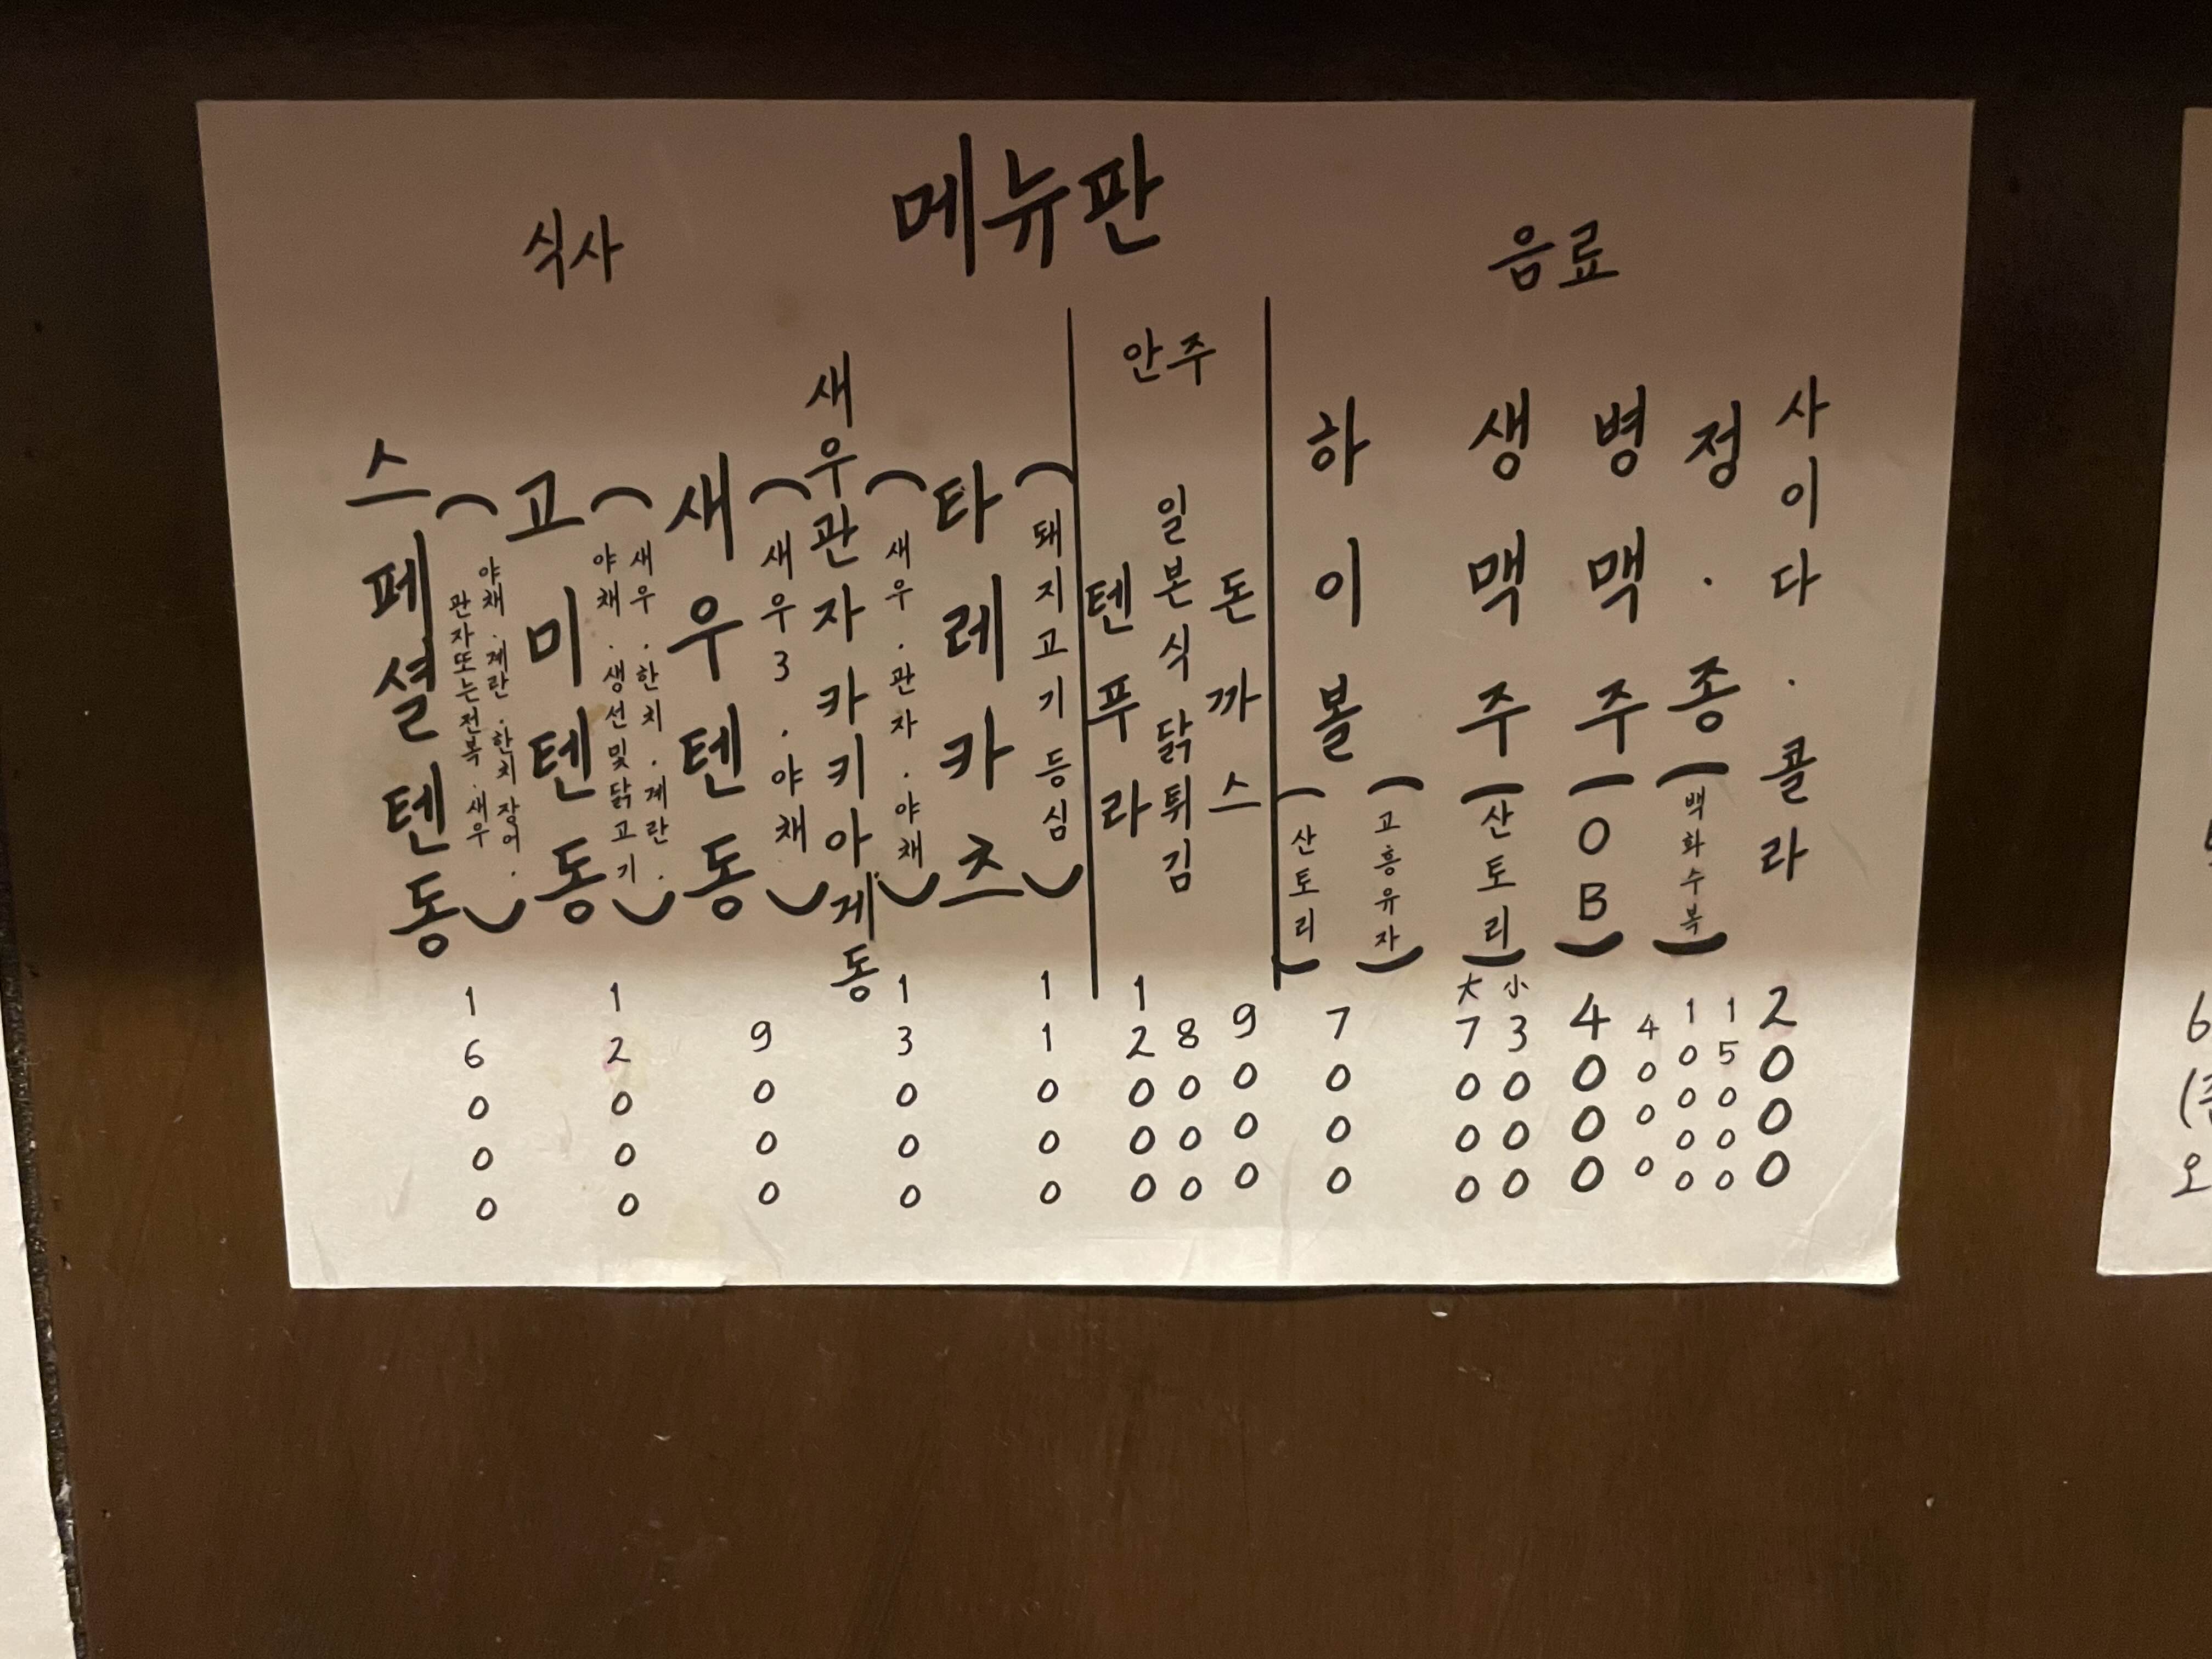 메뉴판
식사
스페셜텐동
(야채.계란.한치장어.
관자또는전복.새우)
16000
고미텐동
(새우.한치.계란.
야채.생선및닭고기)
12000
새우텐동
(새우3.야채)
9000
새우관자카키아게동
(새우.관자.야채)
13000
타레카츠
(돼지고기등심)
11000
안주
텐푸라
12000
일본식닭튀김
8000
돈까스
9000
음료
하이볼
(산토리)
(고흥유자)
7000
생맥주
(산토리)
大 7000
小 3000
병맥주
(OB)
4000
정.종
(백화수복)
4000
10000
15000
사이다.콜라
2000
6
(
오